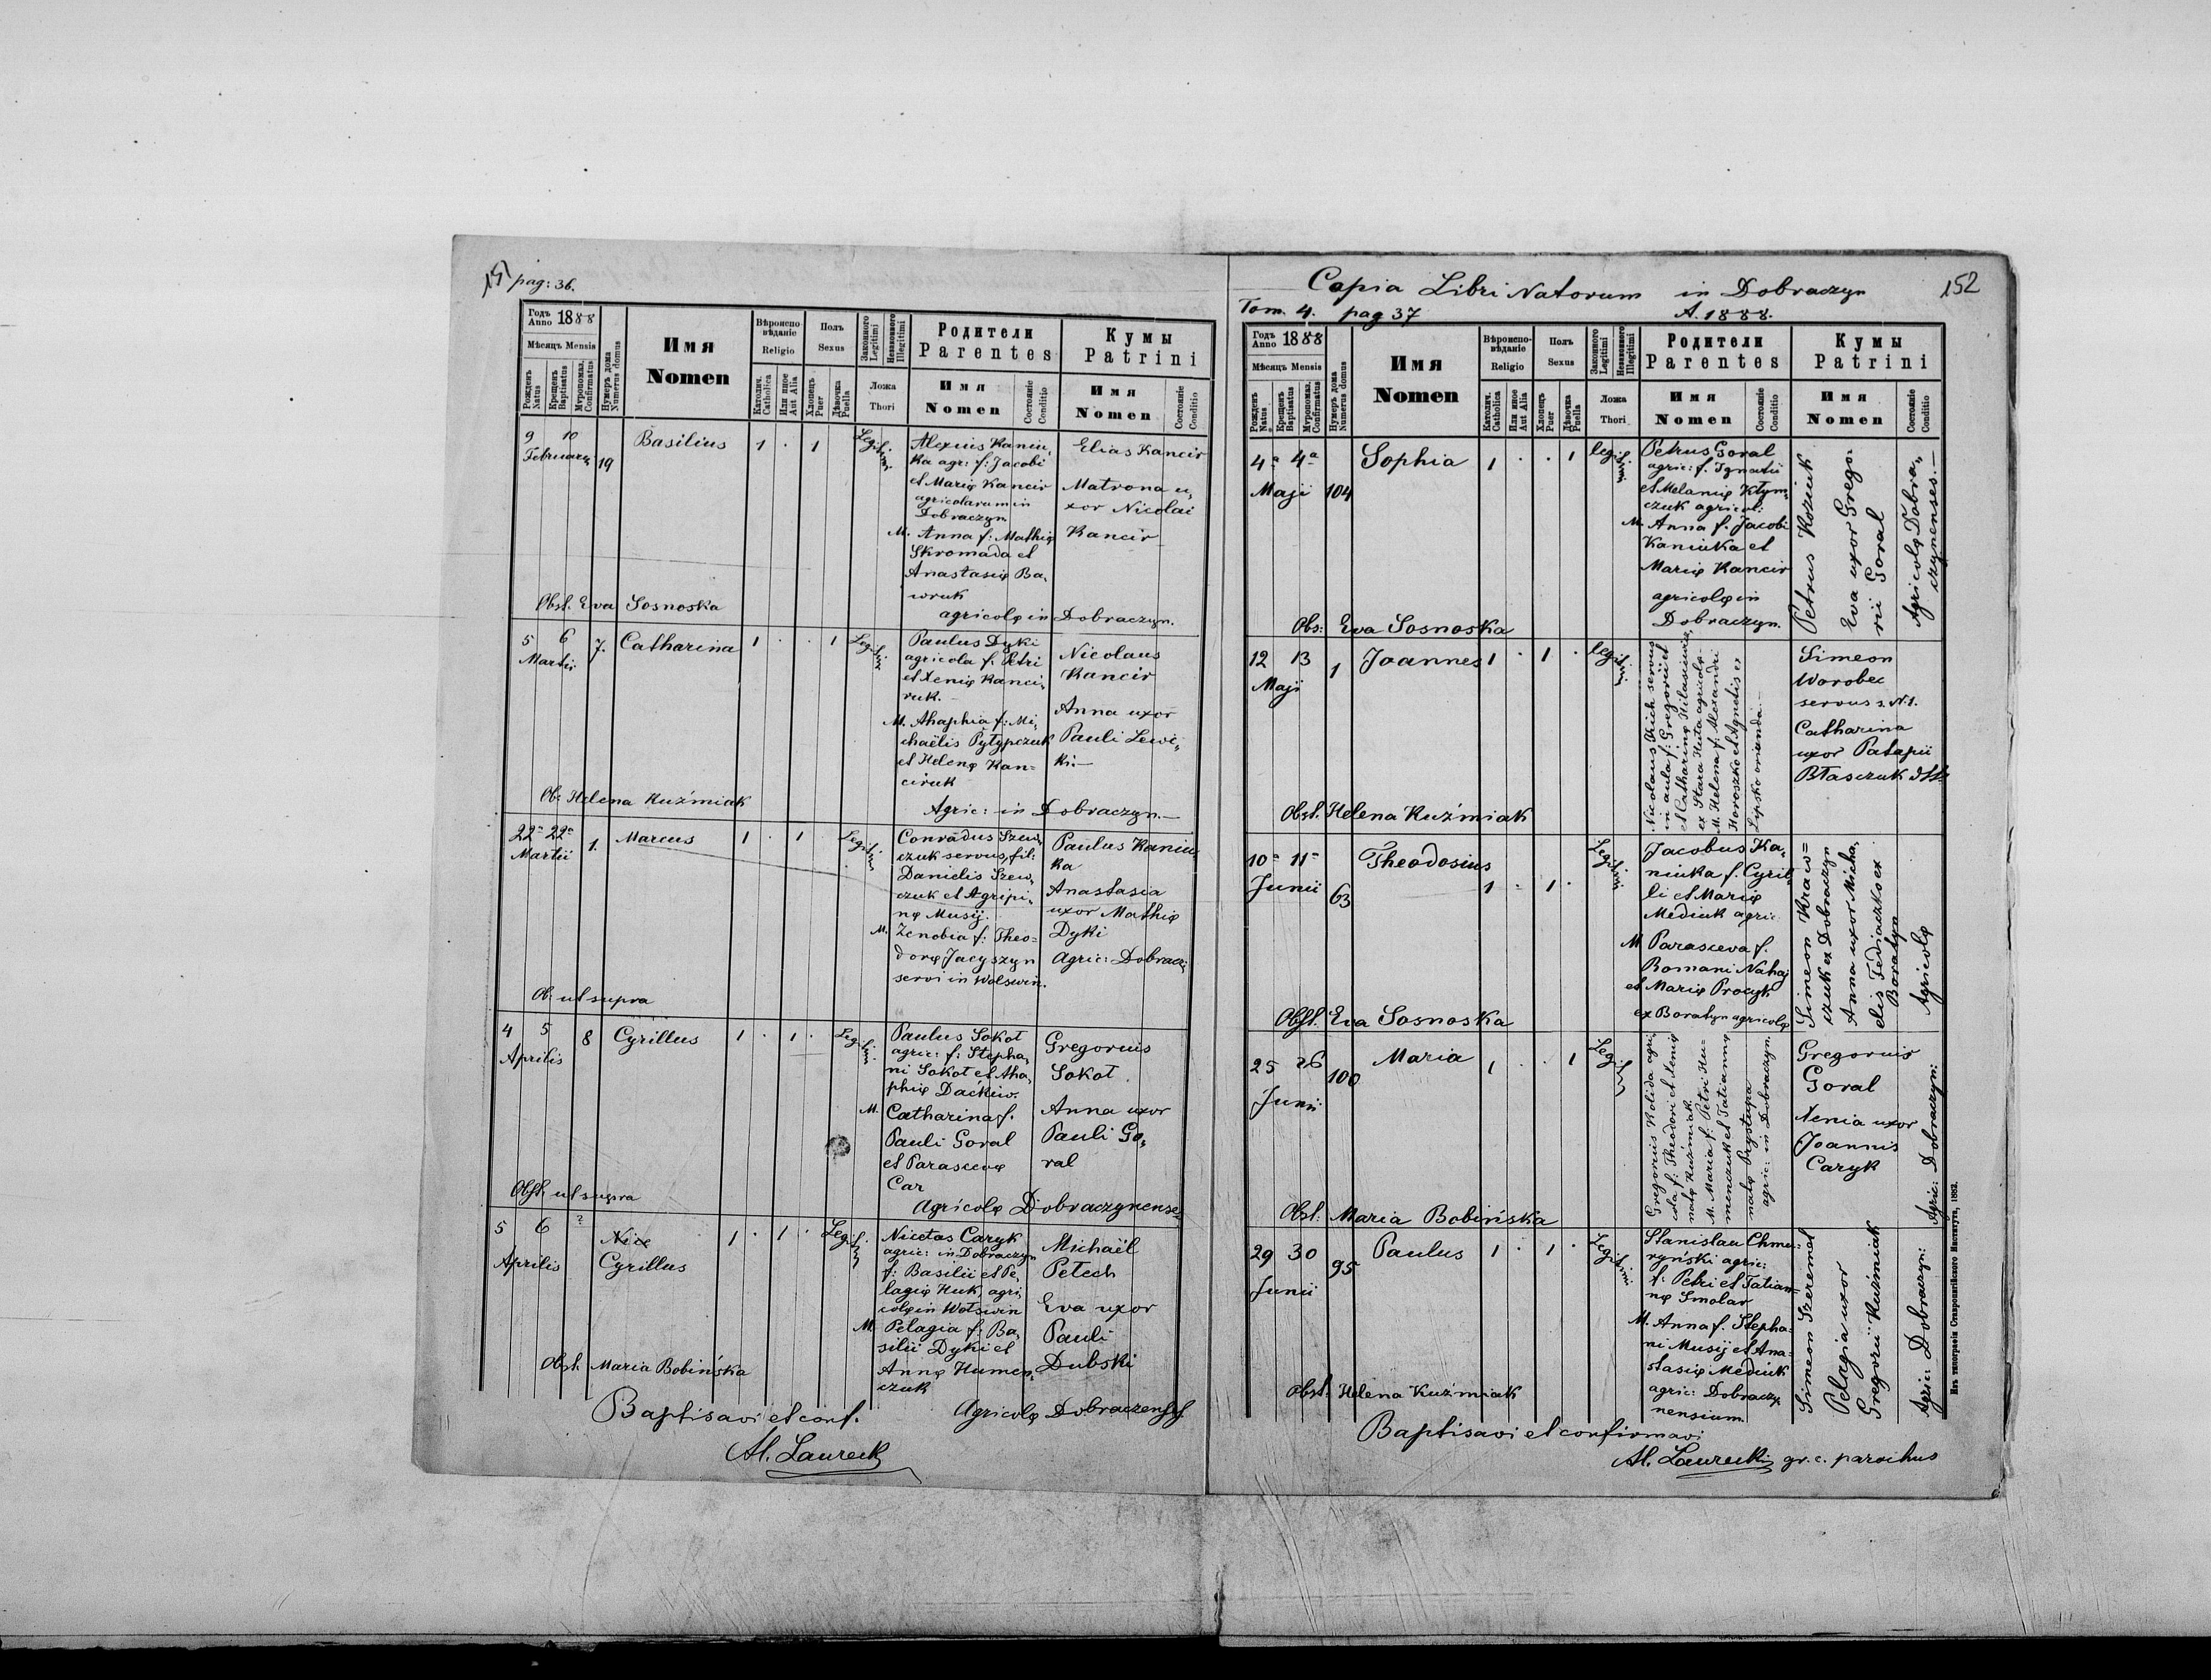 151 pag: 36.
Годъ Anno 1888
Мѣсяцъ Mensis
Рожденъ Natus
Крещенъ Baptisatus
Мѵропомаз. Confirmatus
Нумеръ дома Numerus domus
Имя
Nomen
Вѣроиспо-
вѣданіе
Religio
Католич. Catholica
Или иное Aut Alia
Полъ
Sexus
Хлопецъ Puer
Дѣвочка Puella
Законного Legitimi
Незаконного Illegitimi
Ложа
Thori
Родители
Parentes
Имя
Nomen
Состояніе Conditio
Кумы
Patrini
Имя
Nomen
Состояніе Conditio
9 10
Februarii 19
Basilius 1 . 1
Legitimi
Alexius Kaniu,
ka agr: f: Jacobi
et Marię Kancir
agricolarum in
Dobraczyn
M. Anna f: Mathię
Skromada et
Anastasię Ba,
wruk
agricolę in Dobraczyn.
Elias Kancir
Matrona u,
xor Nicolai
Kancir
Obst. Eva Sosnoska
5 6
Martii 7.
Catharina 1 . . 1
Legitimi
Paulus Dyki
agricola f: Petri
et Xenię Kanci,
ruk.-
M. Ahaphia f: Mi,
chaëlis Pyłypczuk
et Helenę Kan=
ciruk
Agric: in Dobraczyn.—
Nicolaus
Kancir
Anna uxor
Pauli Lewi,
ki.—
Ob: Helena Kuźmiak
22ª 22ª
Martii 1.
Marcus 1 . 1
Legitimi
Conradus Szew,
czuk servus, fil:
Danielis Szew,
czuk et Agripi,
nę Musij.
M. Zenobia f: Theo=
dorę Jacyszyn
servi in Wolswin.
Paulus Kaniu,
ka
Anastasia
uxor Mathię
Dyki
Agric: Dobracz:
Ob: ut supra
4 5
Aprilis 8
Cyrillus 1 . 1 .
Legitimi
Paulus Sokoł
agric: f: Stepha,
ni Sokoł et Aha,
phię Dackiw.
M. Catharina f.
Pauli Goral
et Parascevę
Car
Agricolę Dobraczynenses
Gregorius
Sokoł.
Anna uxor
Pauli Go,
ral
Obst. ut supra
5 6 ?
Aprilis
Nice
Cyrillus 1 . 1 .
Legitimi
Nicetas Caryk
agric: in Dobraczyn
f: Basilii et Pe,
lagię Huk, agri,
colę in Wołswin
M. Pelagia f: Ba,
silii Dyki et
Annę Humen,
czuk
Agricolę Dobraczenses
Michaël
Petech
Eva uxor
Pauli
Dubski
Obst. Maria Bobińska
Baptisavi et conf.
Al. Laurecki
Copia Libri Natorum in Dobraczyn 152
Tom. 4. pag 37 A. 1888.
Годъ Anno 1888
Мѣсяцъ Mensis
Рожденъ Natus
Крещенъ Baptisatus
Мѵропомаз. Confirmatus
Нумеръ дома Numerus domus
Имя
Nomen
Вѣроиспо-
вѣданіе
Religio
Католич. Catholica
Или иное Aut Alia
Полъ
Sexus
Хлопецъ Puer
Дѣвочка Puella
Законного Legitimi
Незаконного Illegitimi
Ложа
Thori
Родители
Parentes
Имя
Nomen
Состояніе Conditio
Кумы
Patrini
Имя
Nomen
Состояніе Conditio
4ª 4ª
Maji 104
Sophia 1 . . 1
legitimi
Petrus Goral
agric: f. Ignatii
et Melanię Kłym,
czuk agricol:
M. Anna f. Jacobi
Kaniuka et
Marię Kancir
agricolę in
Dobraczyn.
Petrus Koziuk
Eva uxor Grego:
rii Goral
Agricolę Dobra,,
czynenses.—
Obs: Eva Sosnoska
12 13
Maji 1
Joannes 1 . 1 .
legitimi
in aula f: Gregorii et
ex Stara Huta agricolę
M. Helena f: Alexandri
Horoszko et Agnetis ex
Lipsko orianda.—
Simeon
Worobec
servus s. N. 1.
Catharina
uxor Patapii
Błasczuk
Obst. Helena Kuźmiak
10ª 11ª
Junii 63
Theodosius 1 . 1 .
Legitimi
Jacobus Ka,
niuka f. Cyril,
li et Marię
Mediuk agric
M Parasceva f.
Romani Nahaj
et Marię Procyk
ex Boratyn agricolę
Simeon Kraw=
czuk ex Dobraczyn
Anna uxor Micha,
elis Fediaczko ex
Boratyn
Agricolę
Obst. Eva Sosnoska
25 26
Junii 100
Maria 1 . . 1
Legitimi
Gregorius Kolida agri,
cola f: Theodori et Xenię
natę Kuźmiak.
M. Maria f: Petri Hu-
menczuk et Tatiannę
natę Przystupa
agric: in Dobraczyn.
Gregorius
Goral
Xenia uxor
Joannis
Caryk
Agric: Dobraczyn:
Obst: Maria Bobińska
29 30
Junii 95
Paulus 1 . 1 .
Legitimi
Stanislau Chmu:
ryński agric:
f: Petri et Tatian=
nę Smolar
M. Anna f. Stepha:
ni Musij et Ana=
stasię Mediuk
agric: Dobraczy
nensium.
Simeon Szeremet
Pelagia uxor
Gregorii Kuźmiak
Agric: Dobraczyn:
Obst. Helena Kuźmiak
Baptisavi et confirmavi
Al. Laurecki gr. c. parochus
Изъ типографіи Ставропигійского Института, 1882.